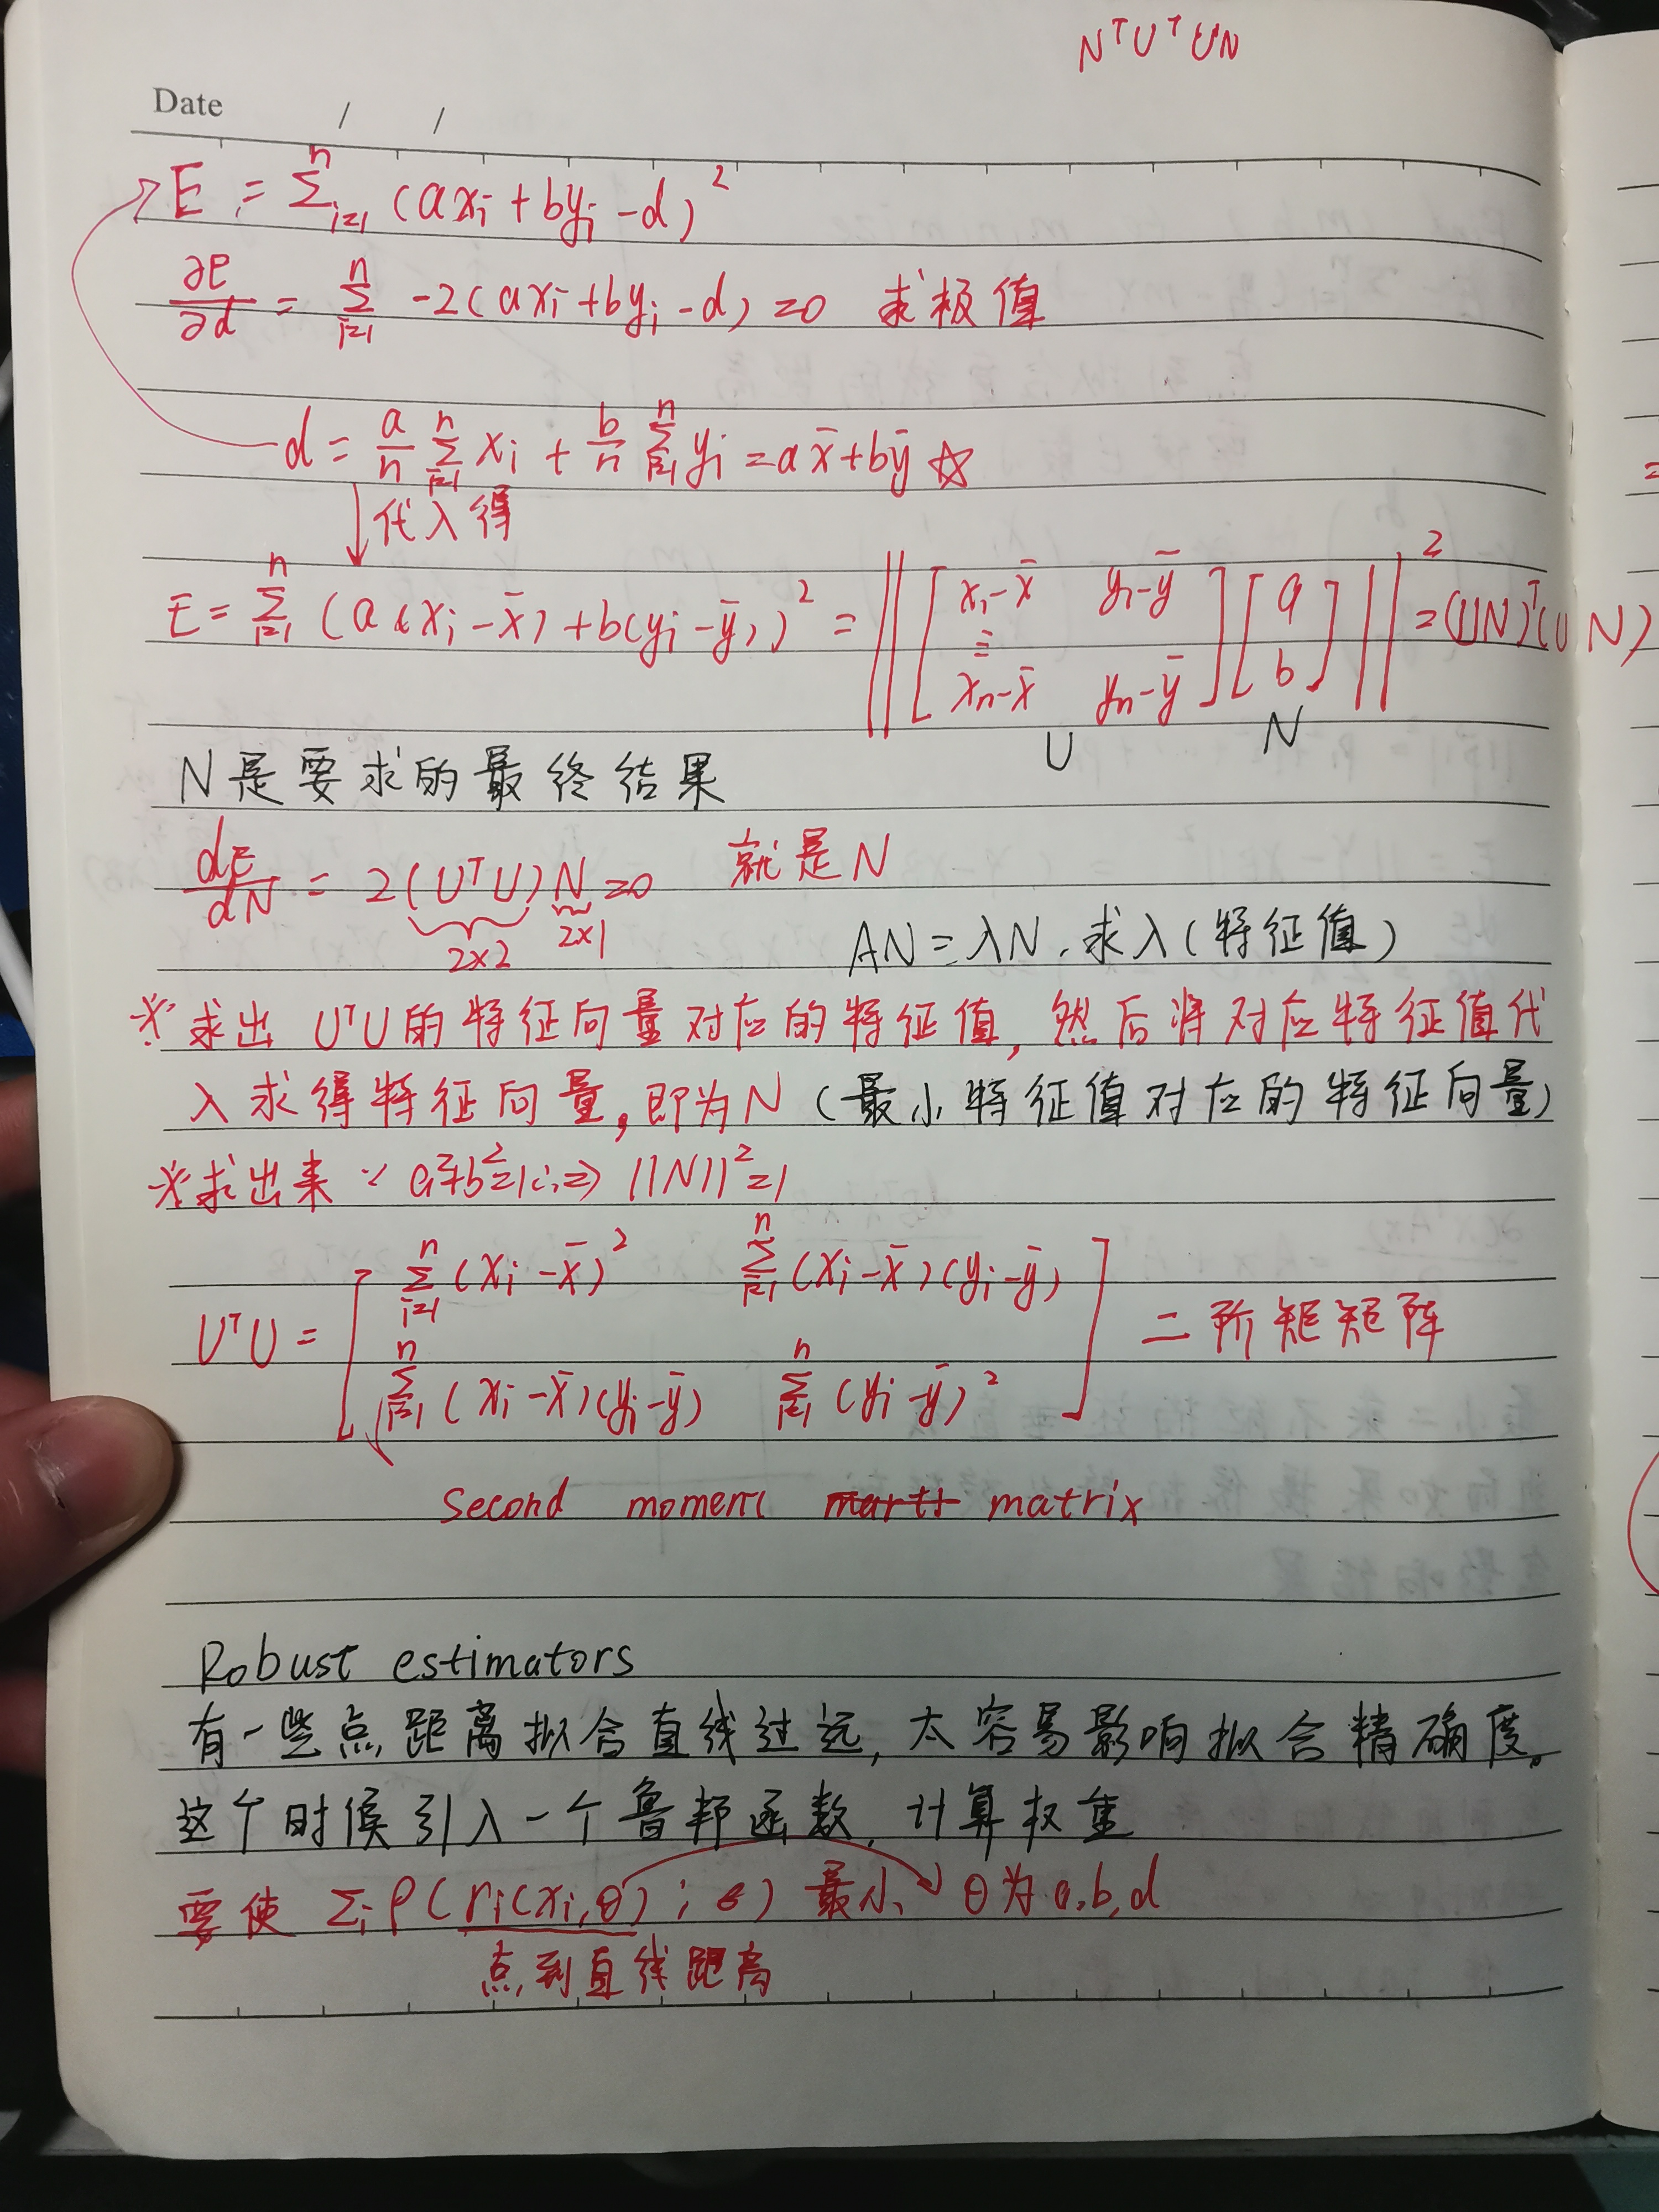 NᵀUᵀUN
Date / /
E = Σⁿᵢ₌₁ (axᵢ + byᵢ - d)²
∂E/∂d = Σⁿᵢ₌₁ -2(axᵢ + byᵢ - d) = 0 求极值
d = a/n Σⁿᵢ₌₁ xᵢ + b/n Σⁿᵢ₌₁ yᵢ = ax̄ + bȳ ☆
↓代入得
E = Σⁿᵢ₌₁ (a(xᵢ - x̄) + b(yᵢ - ȳ))² = ‖[x₁-x̄ y₁-ȳ ⋮ xₙ-x̄ yₙ-ȳ][a b]‖² = (UN)ᵀ(UN)
U N
N是要求的最终结果
dE/dN = 2(UᵀU)N = 0 就是N
2×2 2×1
AN = λN. 求λ(特征值)
※求出UᵀU的特征向量对应的特征值, 然后将对应特征值代
入求得特征向量, 即为N (最小特征值对应的特征向量)
※求出来 ∵ a²+b²=1 ∴⇒ ‖N‖²=1
UᵀU = [Σⁿᵢ₌₁(xᵢ-x̄)² Σⁿᵢ₌₁(xᵢ-x̄)(yᵢ-ȳ) Σⁿᵢ₌₁(xᵢ-x̄)(yᵢ-ȳ) Σⁿᵢ₌₁(yᵢ-ȳ)²] 二阶矩矩阵
Second moment matrix
Robust estimators
有一些点距离拟合直线过远, 太容易影响拟合精确度。
这个时候引入一个鲁邦函数, 计算权重
要使 Σᵢ ρ(rᵢ(xᵢ,θ); σ) 最小、 θ为a,b,d
点到直线距离